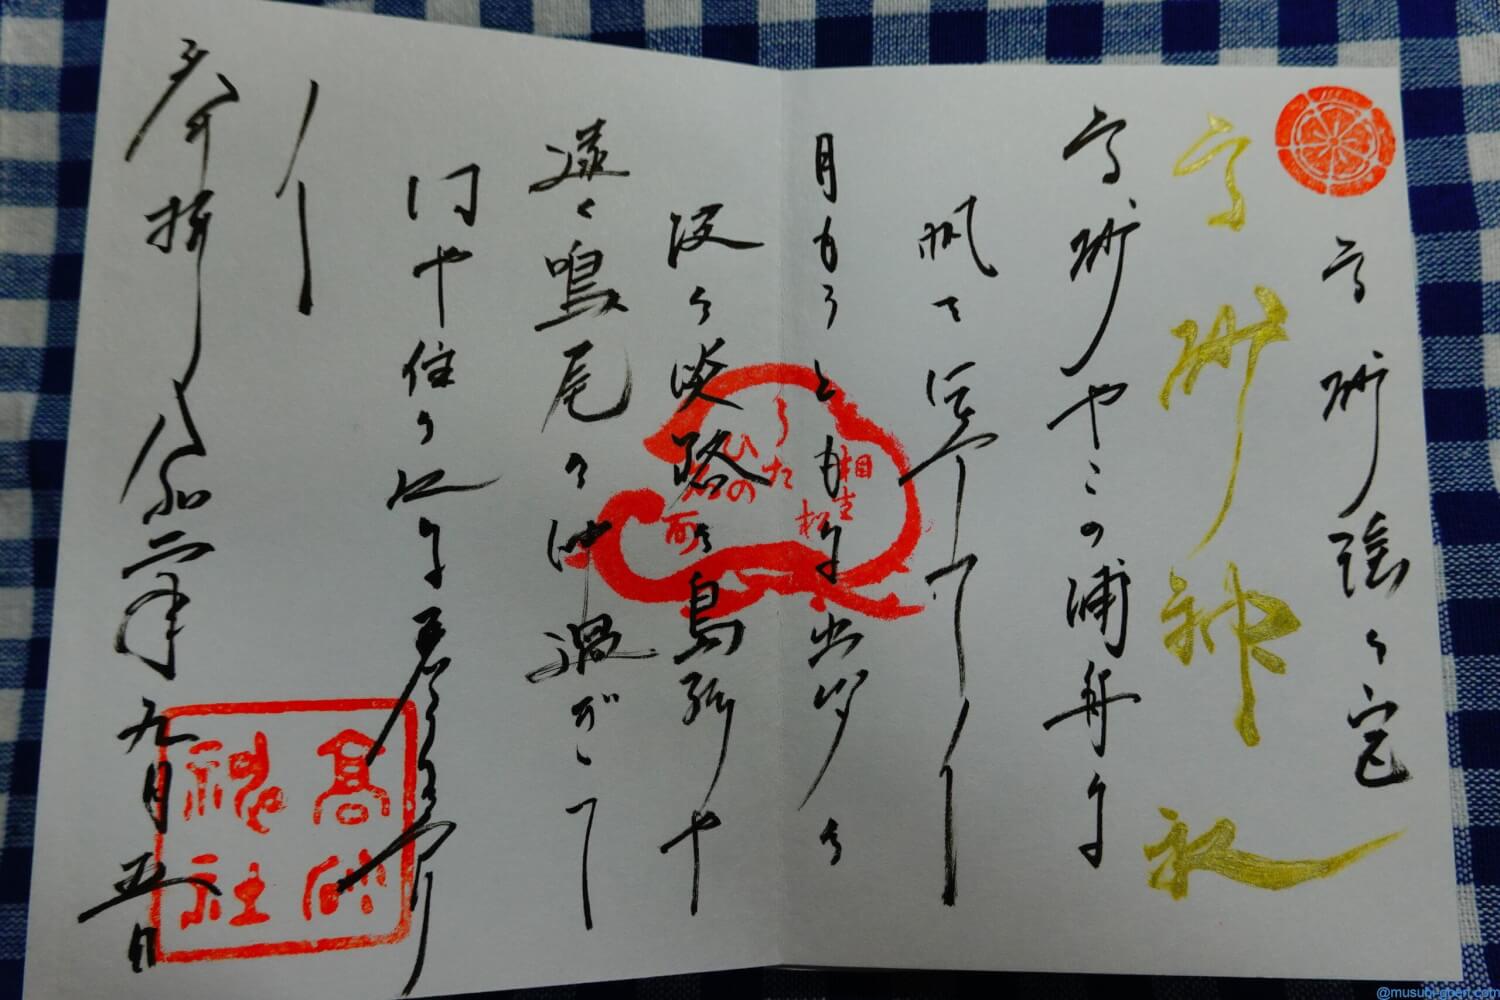 高砂謡の宮
高砂神社
高砂やこの浦舟に
帆を揚げて
月もろともに出汐の
波の淡路の島影や
遠く鳴尾の沖過ぎて
はや住の江に着きにけり
奉拝 令和二年九月五日
相生松
うたひの
名所
高砂
神社